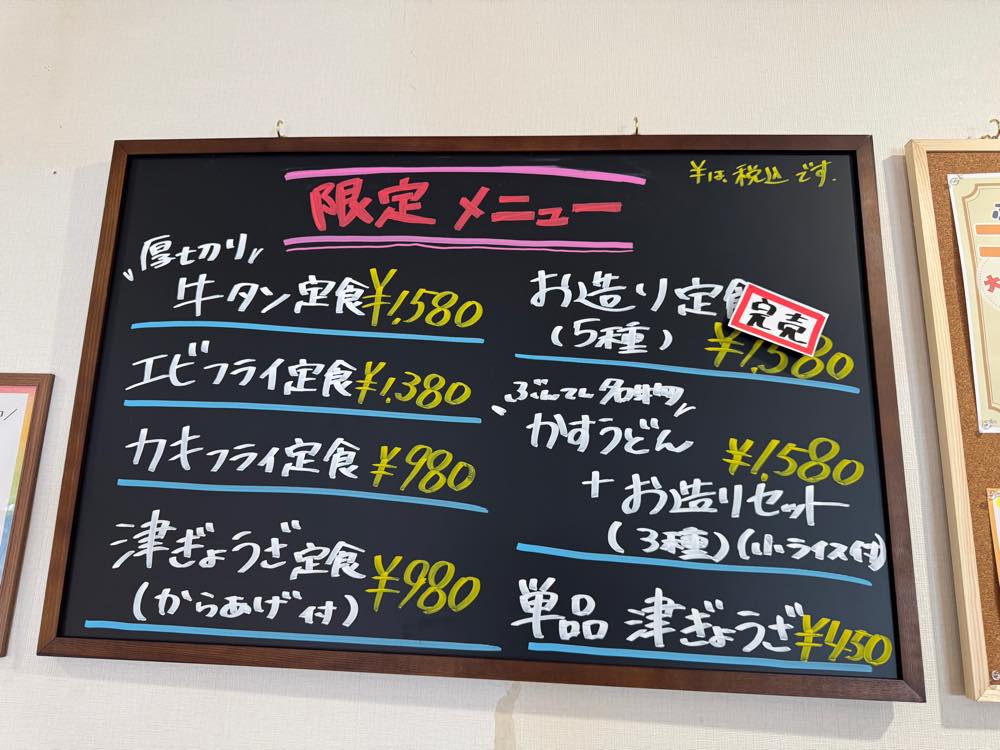 限定 メニュー
¥は、税込です。
厚切り
牛タン定食 ¥1,580
エビフライ定食 ¥1,380
カキフライ定食 ¥980
津ぎょうざ定食 ¥980
(からあげ付)
お造り定食
完売
(5種) ¥1,580
ぶんてん名物
かすうどん ¥1,580
+お造りセット
(3種)(小ライス付)
単品 津ぎょうざ ¥450